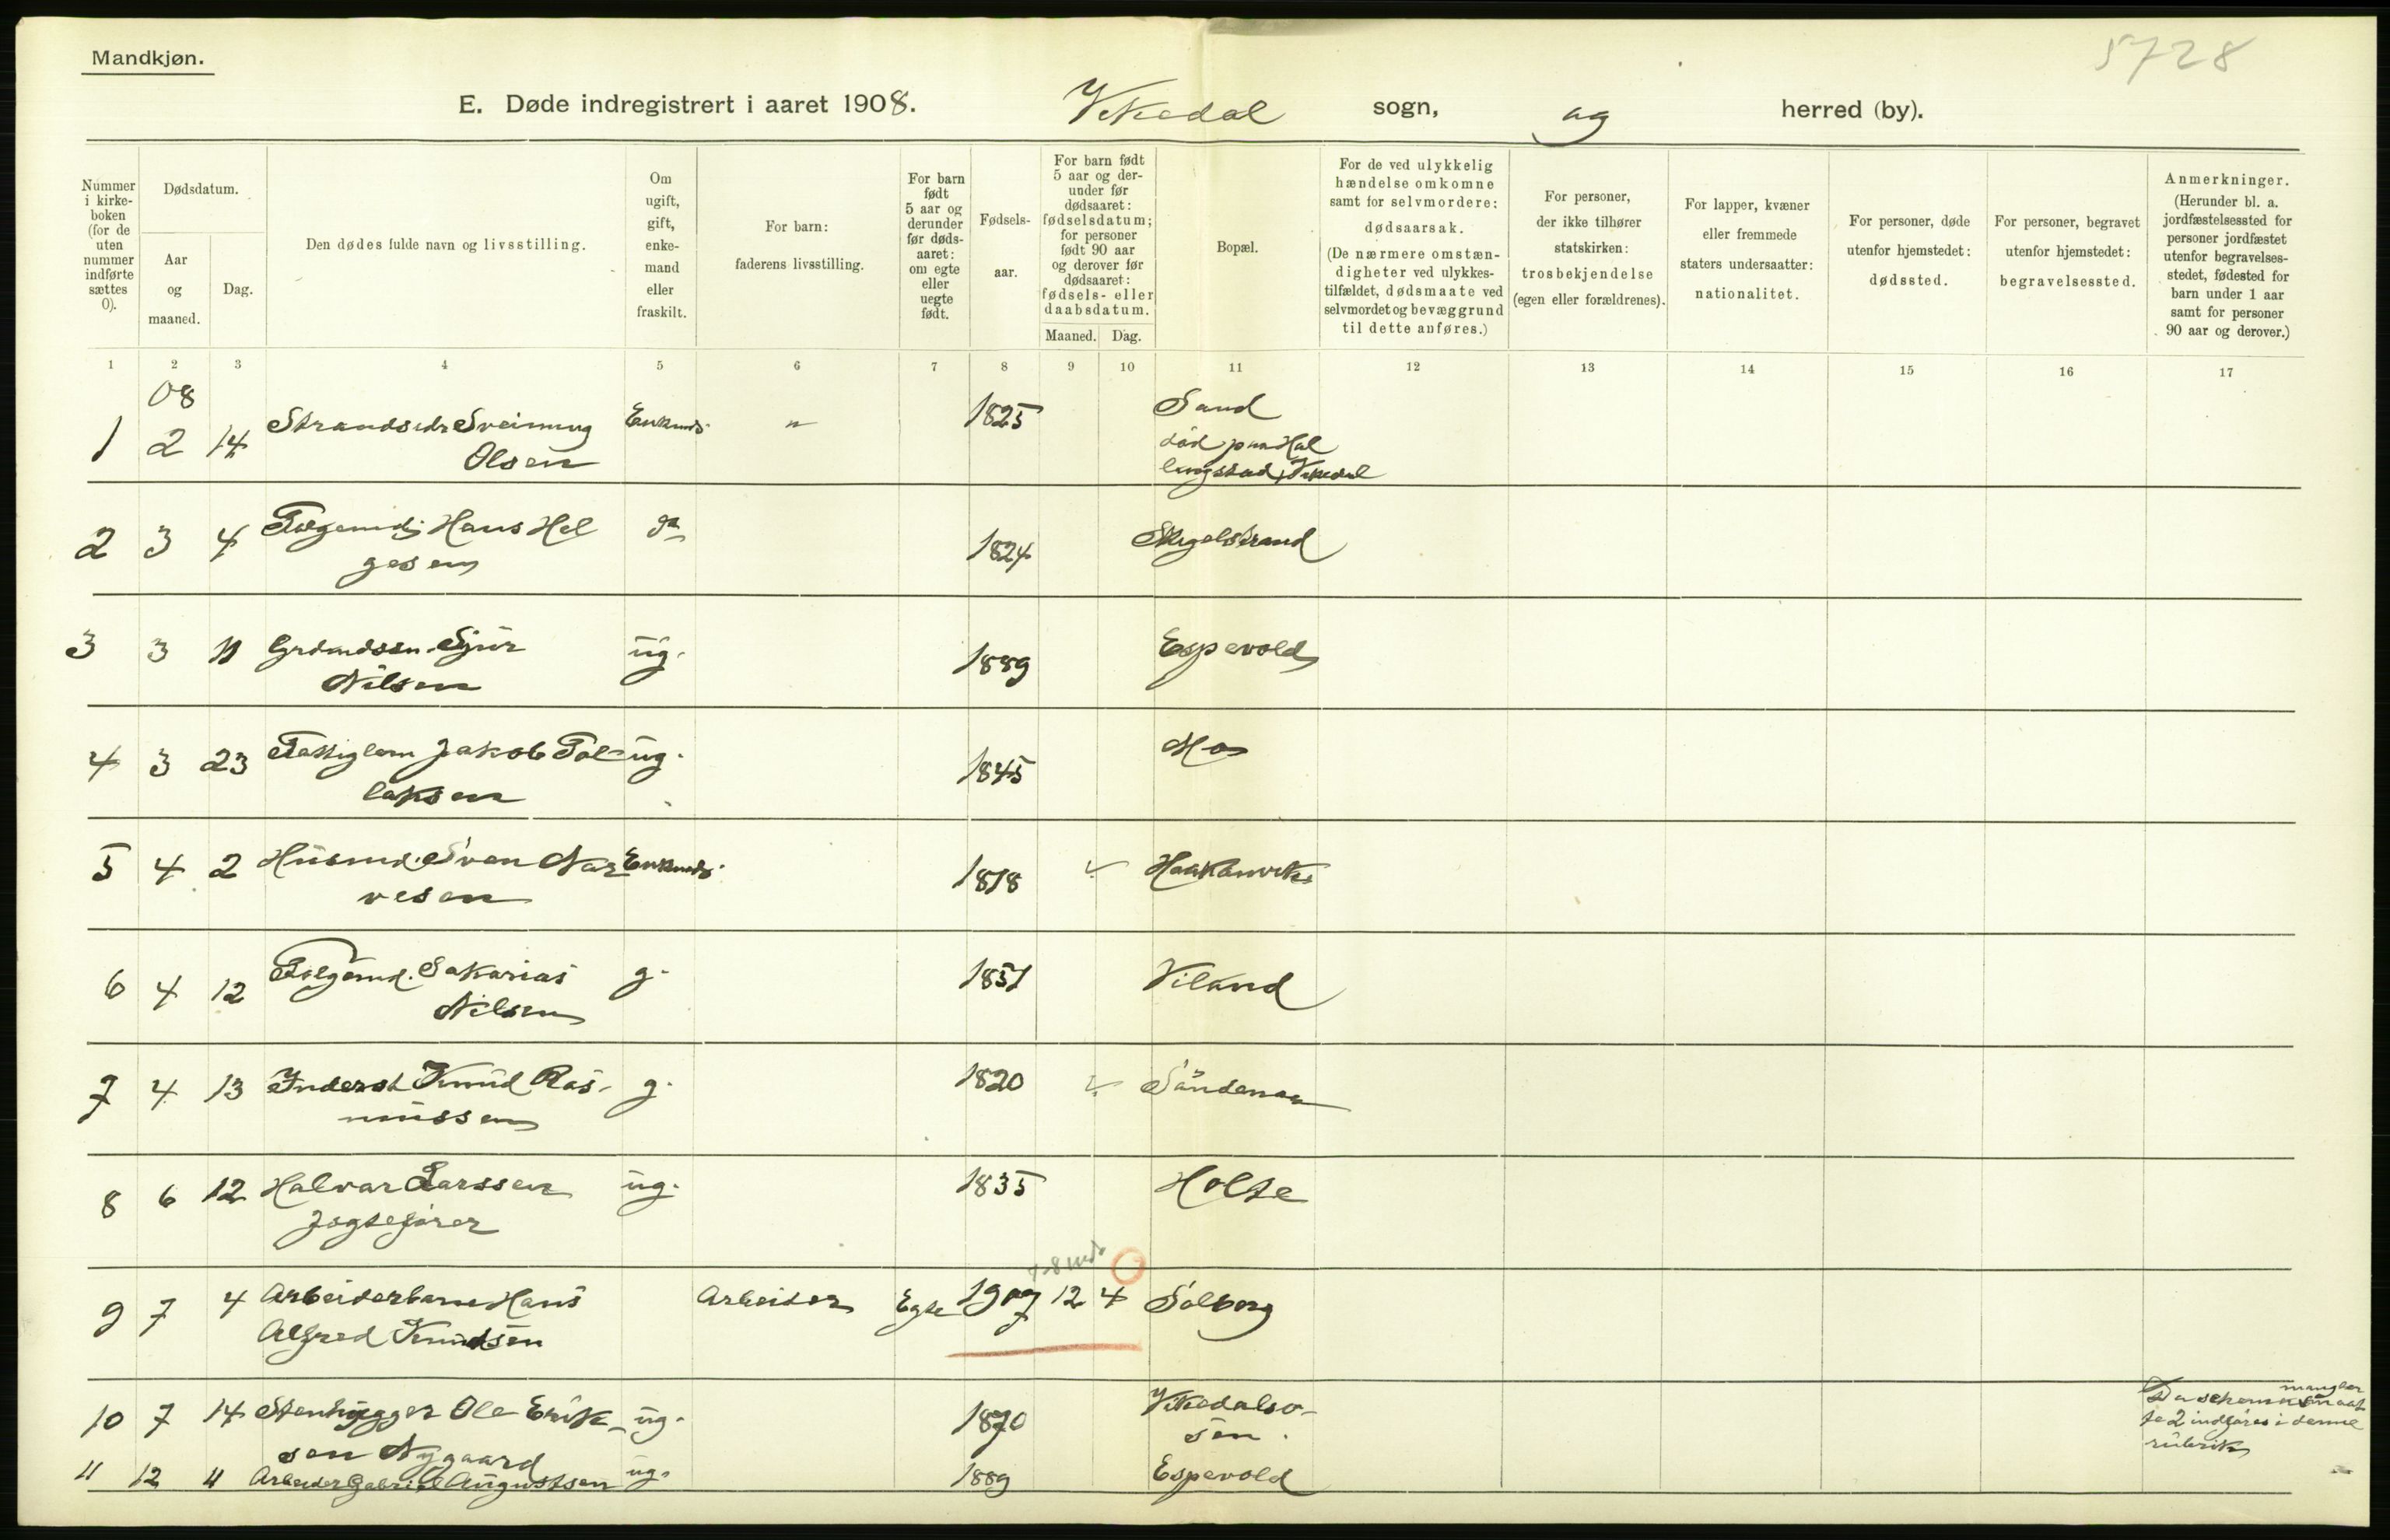 Mandkjøn.
5728
E. Døde indregistrert i aaret 1908. Vikedal sogn, og herred (by).
Nummer i kirkeboken (for de uten nummer indførte sættes 0).
Dødsdatum.
Aar og maaned.
Dag.
Den dødes fulde navn og livsstilling.
Om ugift, gift, enkemand eller fraskilt.
For barn: faderens livsstilling.
For barn født 5 aar og derunder før dødsaaret: om egte eller uegte født.
Fødselsaar.
For barn født 5 aar og derunder før dødsaaret: fødselsdatum; for personer født 90 aar og derover før dødsaaret: fødsels- eller daabsdatum.
Maaned. Dag.
Bopæl.
For de ved ulykkelig hændelse omkomne samt for selvmordere: dødsaarsak. (De nærmere omstændigheter ved ulykkestilfældet, dødsmaate ved selvmordet og bevæggrund til dette anføres.)
For personer, der ikke tilhører statskirken: trosbekjendelse (egen eller forældrenes).
For lapper, kvæner eller fremmede staters undersaatter: nationalitet.
For personer, døde utenfor hjemstedet: dødssted.
For personer, begravet utenfor hjemstedet: begravelsessted.
Anmerkninger. (Herunder bl. a. jordfæstelsessted for personer jordfæstet utenfor begravelsesstedet, fødested for barn under 1 aar samt for personer 90 aar og derover.)
1 2 3 4 5 6 7 8 9 10 11 12 13 14 15 16 17
08
1 2 14 Strandsidr Sveinung Enkmd. " 1825 Sand
Olsen død paa Hal
lingstad, Vikedal
2 3 4 Hans Hel 1824
gesen
3 3 11 Grdmdssn. Sjur ug. 1889 Espevold
Nilsen
4 3 23 Fattiglem Jakob Tol ug. 1845 Mo
laksen
5 4 2 Husmd. Sven Nar Enkmd. 1818 Haakonvik
vesen
6 4 12 Sakarias g. 1851 Viland
Nilsen
7 4 13 Inderst Knud Ras- g. 1820 Søndenaa
mussen
8 6 12 Halvar Larssen ug. 1835 Holte
Jagtefører
7-8 md.
9 7 4 Arbeiderbarn Hans Arbeider Egte 1907 12 4 Solberg
Alfred Knudsen
10 7 14 Stenhugger Ole Erik- ug. 1870 Vikedalsø-
sen Nygaard ren.
11 12 11 Arbeider Gabriel Augustsen ug. 1889 Espevold
Da schema mangler
2 indføres i denne
rubrik